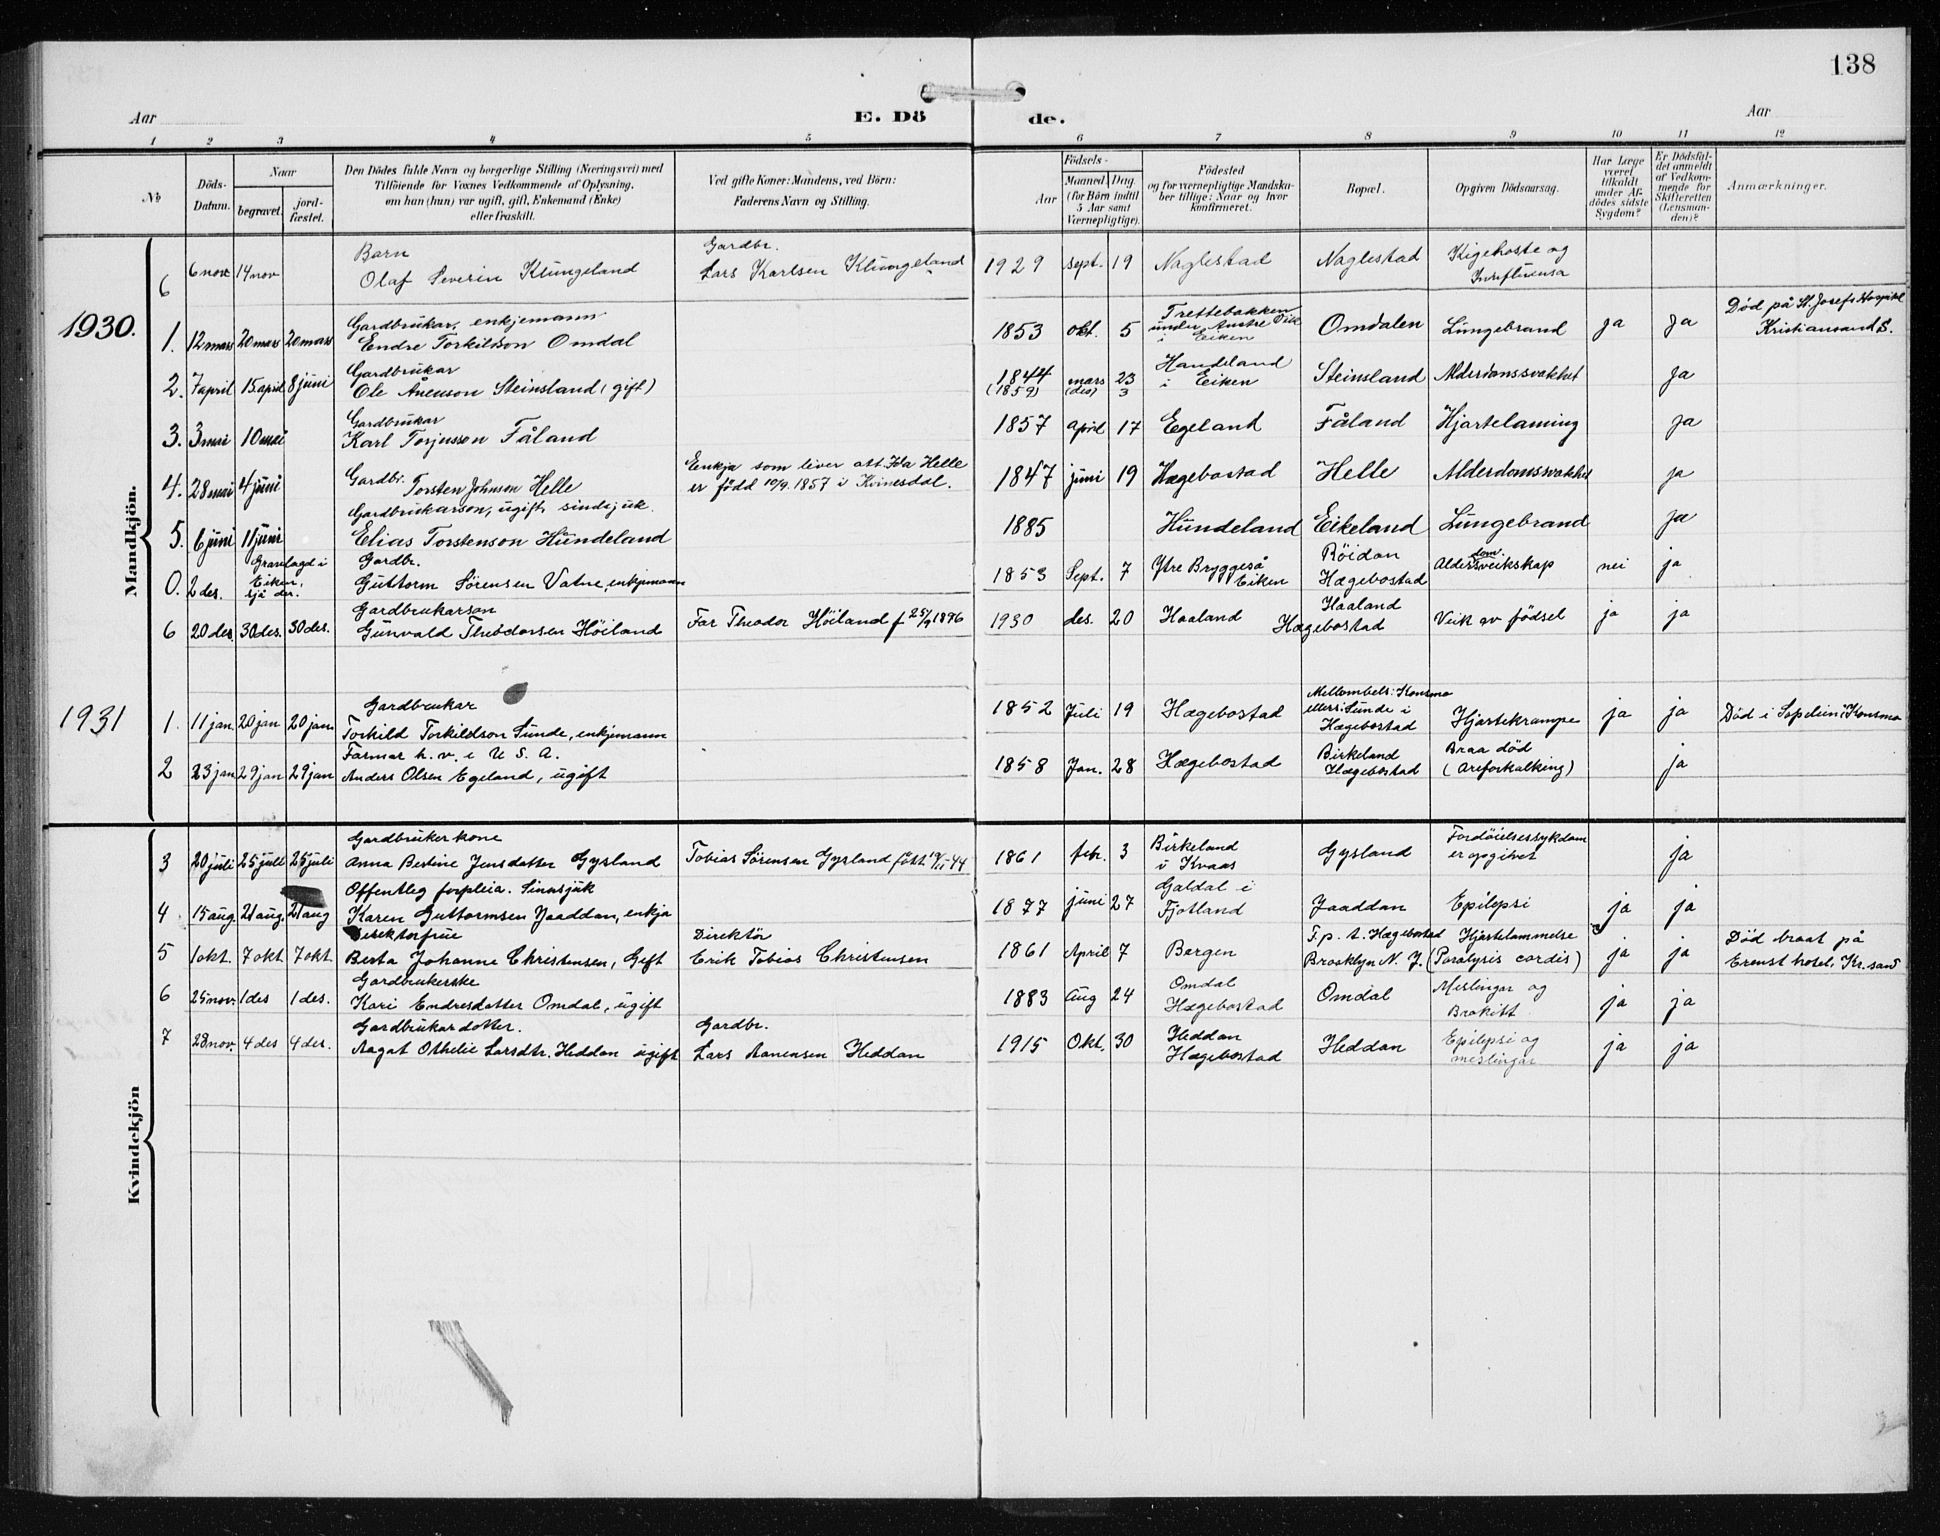 138
Aar
E. Dö
de.
Aar
1 2 3 4 5 6 7 8 9 10 11 12
No
Döds-Datum.
Naar
begravet.
jord-fæstet.
Den Dödes fulde Navn og borgerlige Stilling (Næringsvei) med
Tilföiende for Voxnes Vedkommende af Oplysning,
om han (hun) var ugift, gift, Enkemand (Enke)
eller fraskilt.
Ved gifte Koner: Mandens, ved Börn:
Faderens Navn og Stilling.
Födsels-
Aar
Maaned Dag
(for Börn indtil
5 Aar samt
Værnepligtige).
Födested
og for værnepligtige Mandska-
ber tillige: Naar og hvor
konfirmeret.
Bopæl.
Opgiven Dödsaarsag.
Har Læge
været
tilkaldt
under Af-
dödes sidste
Sygdom?
Er Dödsfal-
det anmeldt
af Vedkom-
mende for
Skifteretten
(Lensman-
den)?
Anmærkninger.
Mandkjön.
Barn Gardbr. Kigehoste og
6 6 nov 14 nov Olaf Severin Klungeland Lars Karlsen Klungeland 1929 sept. 19 Naglestad Naglestad Influensa
1930.
Gardbrukar, enkjemann Trettebakken under Austre Eiken Død på St. Josefs Hospital
1. 12 mars 20 mars 20 mars Endre Torkildson Omdal 1853 okt. 5 i Eiken Omdalen Lungebrand ja ja Kristiansand S.
Gardbrukar 1844 mars 23 Handeland
2. 7 april 15. april 8 juni Ole Ånenson Steinsland (gift) (1859) (des) 3 i Eiken Steinsland Alderdomssvakhet ja
Gardbrukar
3. 3 mai 10 mai Karl Torjusson Fåland 1857 april 17 Egeland Fåland Hjartelaming ja
Gardbr. Enkja som liver att Ida Helle
4. 28 mai 4 juni Torsten Johnson Helle er född 10/9. 1857 i Kvinesdal. 1847 juni 19 Hægebostad Helle Alderdomsvakhet ja
Gardbrukarson, ugift, sindsjuk.
5. 6 juni 11 juni Elias Torstenson Hundeland 1885 Hundeland Eikeland Lungebrand ja
Gravlagd i Eiken, sjå der. Gardbr. Röidan
0. 2 des. Guttorm Sörensen Vatne, enkjemann 1853 Sept. 7 Ytre Bryggeså Eiken Hægebostad Aldersdomveikskap nei ja
Gardbrukarson Haaland
6 20 des. 30 des. 30 des. Gunvald Theodorsen Höiland Far Theodor Höiland f 25/9 1896 1930 des. 20 Haaland Hægebostad Veik av födsel ja ja
1931
Gardbrukar Mellombels: Konsmo ellers: Sunde i
1. 11 jan. 20 jan 20 jan. Torkild Torkildson Sunde, enkjemann 1852 Juli 19 Hægebostad Hægebostad Hjartekrampe ja ja Død i Konsmo
Farmar h. v. i U. S. A. Birkeland Braa död
2 23 jan 29 jan 29 jan Anders Olsen Egeland, ugift 1858 Jan. 28 Hægebostad Hægebostad (Areforkalking) ja
Kvindekjön
Gardbrukerkone Birkeland Fordöielsessykdom
3 20 juli 25 juli 25 juli Anna Bertine Jensdatter Gysland Tobias Sörensen Gysland född 1861 feb. 3 i Kvaas Gysland er opgivet ja
Offentleg forpleia. Sinnsjuk Galdal i
4 15 aug 21 aug. 21 aug Karen Guttormsen Jaaddan, enkja 1877 juni 27 Fjotland Jaaddan Epilepsi ja ja
Direktorfrue Direktör F. p. t. Hægebostad Hjartelammelse Död braat på
5 1 okt. 7 okt 7 okt. Berta Johanne Christensen, Gift Erik Tobias Christensen 1861 April 7 Bergen Brooklyn N. Y. (Paralysis cordis) ja ja Ernst hotel, Kr.sand
Gardbrukerske Omdal Meslingar og
6 25 nov. 1 des 1 des. Kari Endresdatter Omdal, ugift 1883 aug 24 Hægebostad Omdal Brokitt ja ja
Gardbrukardotter. Gardbr. Heddan Epilepsi og
7 28 nov. 4 des 4 des. Aagot Othelie Larsdtr. Heddan ugift Lars Aanensen Heddan 1915 Okt. 30 Hægebostad Heddan meslingar ja ja